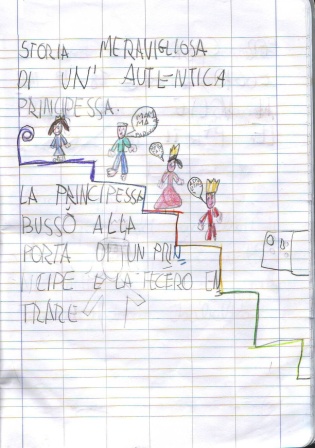 STORIA MERAVIGLIOSA
DI UN' AUTENTICA
PRINCIPESSA.
LA PRINCIPESSA
BUSSÒ ALLA
PORTA DI UN PRIN
CIPE E LA FECERO EN
TRARE